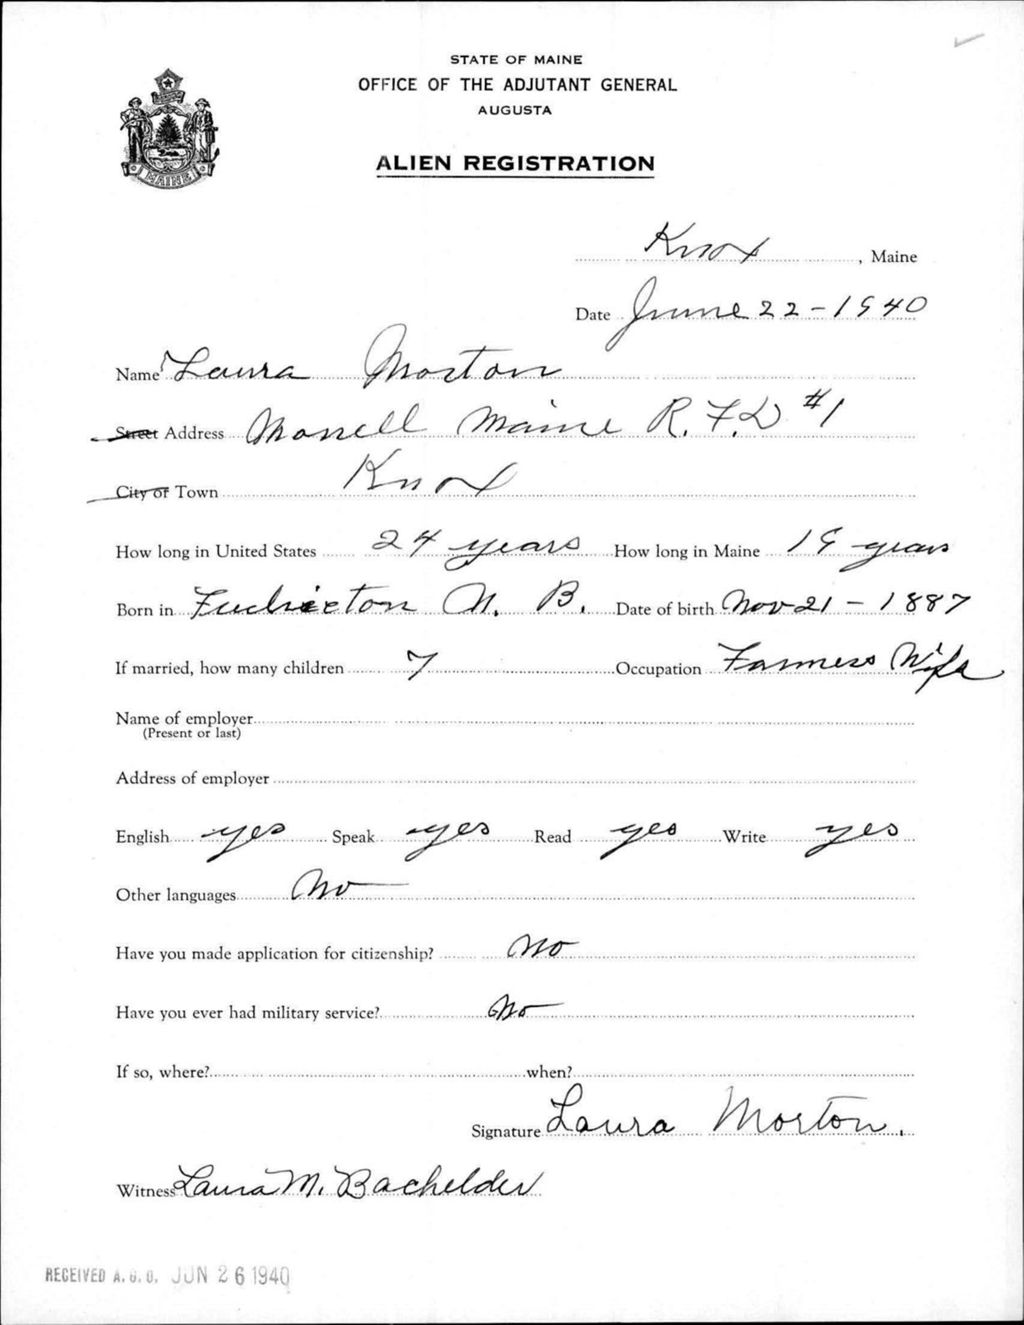 STATE OF MAINE
OFFICE OF THE ADJUTANT GENERAL
AUGUSTA
ALIEN REGISTRATION
MAINE
Knox, Maine
Date June 22-1940
Name Laura Morton
Street Address Morrell Maine R.F.D #1
City or Town Knox
How long in United States 24 years How long in Maine 19 years
Born in Fredricton N. B. Date of birth Nov 21 - 1887
If married, how many children 7 Occupation Farmers Wife
Name of employer
(Present or last)
Address of employer
English yes Speak yes Read yes Write yes
Other languages No
Have you made application for citizenship? No
Have you ever had military service? No
If so, where? when?
Signature Laura Morton.
Witness Laura M. Bachelder
RECEIVED A. G. O. JUN 26 1940